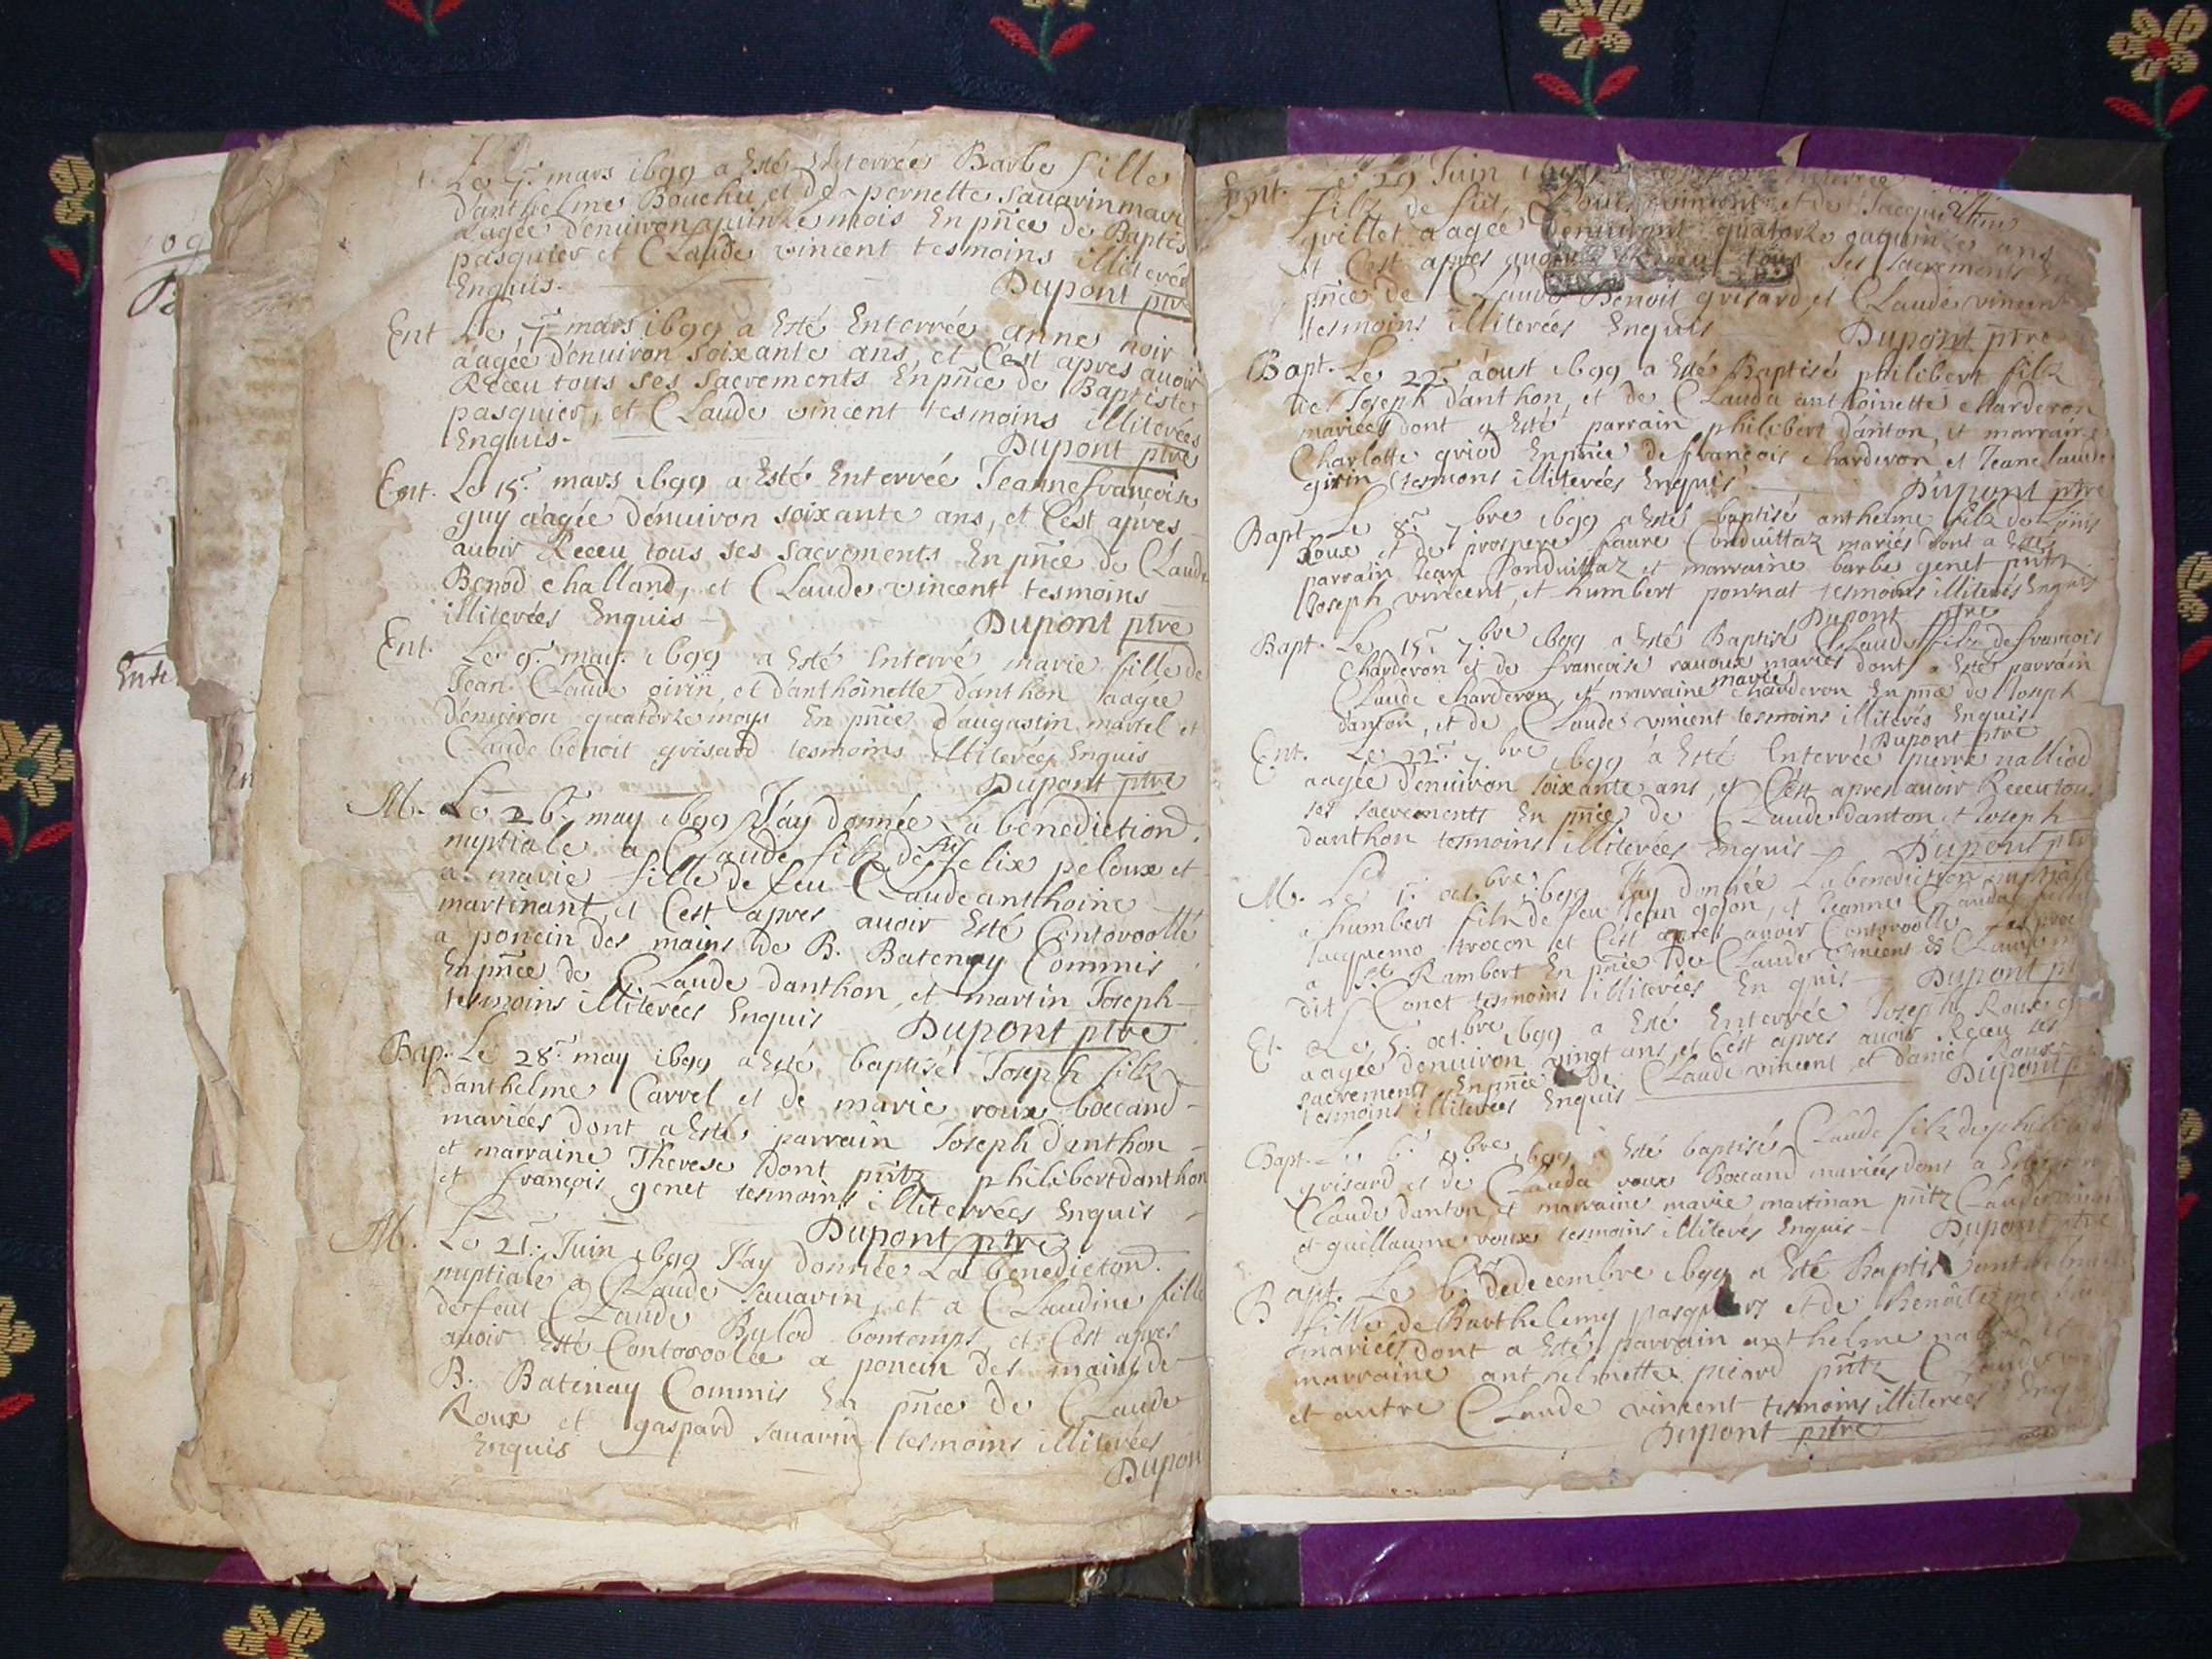 Le 7. mars 1699 a Esté Enterrée Barbe fille
d'anthelme Bouchu et de pernette sauarin mari
aagée d'enuiron quinze mois En pñce de Baptis
pasquier et Claude vincent tesmoins illiterés
Enquis. Dupont ptre
Ent Le 7. mars 1699 a Esté Enterrée anne noir
aagée d'enuiron soixante ans, et C'est apres auoir
Receu tous ses sacrements En pñce de Baptiste
pasquier, et Claude vincent tesmoins illiterées
Enquis. Dupont ptre
Ent. Le 15. mars 1699 a Esté Enterrée Jeanne francoise
guy aagée d'enuiron soixante ans, et C'est apres
auoir Receu tous ses sacrements En pñce de Claude
Benod challand, et Claude vincent tesmoins
illiterées Enquis Dupont ptre
Ent. Le 9. may. 1699 a Esté Enterré marie fille de
Jean Claude girin, et d'anthoinette d'anthon aagée
d'enuiron quatorze moys En pñce d'augustin martel et
Claude benoit grisard tesmoins illiterées Enquis
Dupont ptre
M. Le 26. may 1699 J'ay donnée La benediction
nuptiale a Claude filz de feu felix peloux et
a marie fille de feu Claude anthoine
martinant, et C'est apres auoir Esté Controollé
a poncin des mains de B. Batenay Commis
En pñce de Claude danthon, et martin Joseph
tesmoins illiterées Enquis Dupont ptre
Bap. Le 28. may 1699 a Esté baptisé Joseph filz
d'anthelme Carrel et de marie roux boccand
mariées dont a Esté parrain Joseph d'anthon
et marraine Therese dont pñtz philibert danthon
et françois genet tesmoins illiterrées Enquis
Dupont ptre
M. Le 21. Juin 1699 J'ay donnée La benediction
nuptiale a Claude sauarin, et a Claudine fille
de feu Claude Bylod bontemps, et C'est apres
auoir Esté Controolée a poncin des mains de
B. Batenay Commis En pñce de Claude
Roux et gaspard sauarin tesmoins illiterées
Enquis Dupon
Ent. Le 29 Juin 1699
filz de feu Roux et de Jacque
grillet aagée d'enuiront quatorze ou quinze ans
et C'est apres auoir Receu tous ses sacrements En
pñce de Claude Benoit grisard, et Claude vincent
tesmoins illiterées Enquis Dupont ptre
Bapt. Le 22. aoust 1699 a Esté Baptisé philibert filz
de Joseph d'anthon, et de Clauda anthoinette charderon
mariées dont a Esté parrain philibert d'anton, et marraine
Charlotte griod En pñce de françois charderon et Jean Claude
girin tesmons illiterées Enquis Dupont ptre
Bapt Le 8. 7bre 1699 a Esté baptisé anthelme filz de
Roux et de prospere faure Conduittaz mariés dont a Esté
parrain Jean Conduittaz et marraine barbe genet pñtz
Joseph vincent, et humbert pournat tesmoins illiterés Enquis
Dupont ptre
Bapt. Le 15. 7.bre 1699 a Esté Baptisé Claude filz de francois
Charderon et de francoise rauoux mariés dont a Esté parrain
Claude charderon, et marraine marie charderon En pñce de Joseph
danton, et de Claude vincent tesmoins illiterés Enquis
Dupont ptre
Ent. Le 22. 7bre 1699 a Esté Enterrée pierre nalliod
aagée d'enuiron soixante ans, et C'est apres auoir Receu tous
ses sacrements En pñce de Claude danton et Joseph
danthon tesmoins illiterées Enquis Dupont ptr
M. Le 1. octbre 1699 J'ay donnée La benediction nuptiale
a humbert filz de feu Jean gojon, et Jeanne Clauda fille
Jacquemo trocon et C'est apres auoir Controollé
a St Rambert En pñce de Claude vincent et Claude
dit Conet tesmoins illiterées En quis Dupont pt
Et. Le 5. octbre 1699 a Esté Enterrée Joseph Roux
aagée d'enuiron vingt ans, et C'est apres auoir Receu ses
sacrements En pñce de Claude vincent, et daniel Roux
tesmoins illiterées Enquis Dupont p
Bapt. Le 6. 9bre 1699 a Esté baptisé Claude filz de philib
grisard et de Clauda roux Boccand mariées dont a Esté
Claude danton et marraine marie martinan pñtz Claude
et guillaume roux tesmoins illiterés Enquis Dupont ptre
Bapt. Le 6. de decembre 1699 a Esté Baptis
fille de Barthelemy pasquiers et de
mariées dont a Esté parrain anthelme
marraine anthelmette picard pñtz Claude
et autre Claude vincent tesmoins illiterées Enq
Dupont ptre